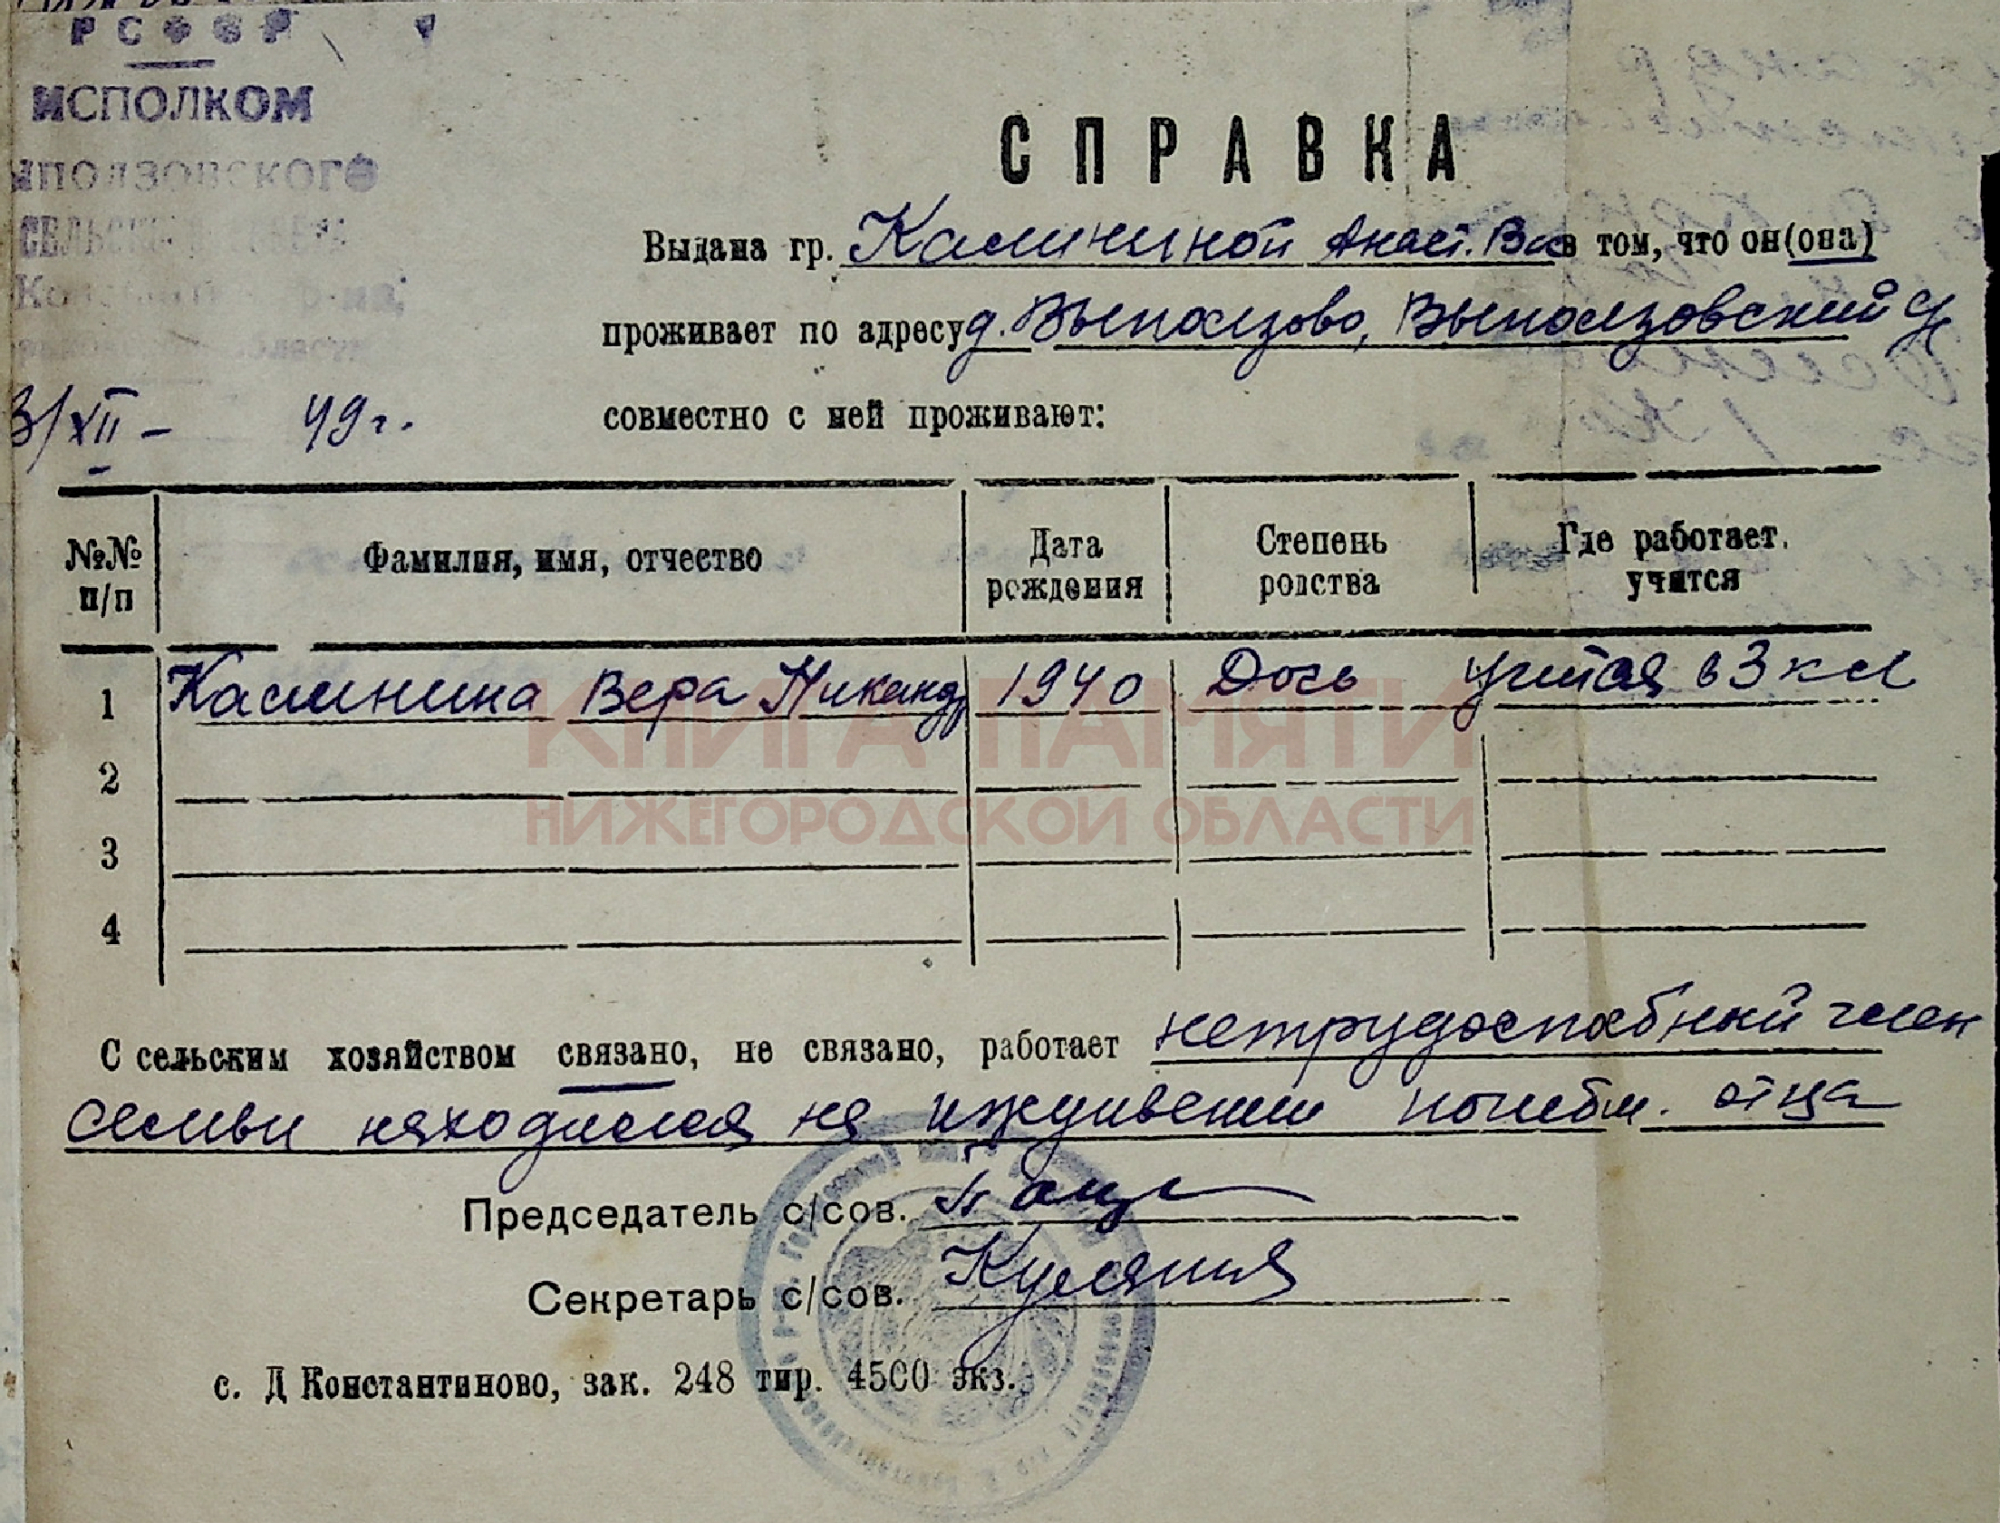 РСФСР
ИСПОЛКОМ
ыползовского
СЕЛЬСК
области
3/XII - 49 г.
СПРАВКА
Выдана гр. Калининой Анаст. Вас в том, что он(она)
проживает по адресу д. Выползово, Выползовский с/с
совместно с ней проживают:
№№ п/п Фамилия, имя, отчество Дата рождения Степень родства Где работает, учится
1 Калинина Вера Никандр 1940 Дочь учится в 3 кл
2
3
4
КНИГА ПАМЯТИ
НИЖЕГОРОДСКОЙ ОБЛАСТИ
С сельским хозяйством связано, не связано, работает нетрудоспабный член
семьи находился на иждивении погибш. отца
Председатель с/сов.
Секретарь с/сов.
с. Д Константиново, зак. 248 тир. 4500 экз.